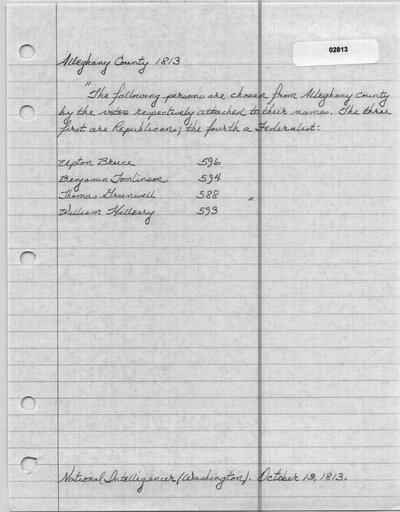 02813
Alleghany County 1813
"The following persons are chosen from Alleghany County
by the votes respectively attached to their names. The three
first are Republicans; the fourth a Federalist:
Upton Bruce 596
Benjamin Tomlinson 594
Thomas Greenwell 588 "
William Hilleary 593
National Intelligencer (Washington). October 13, 1813.